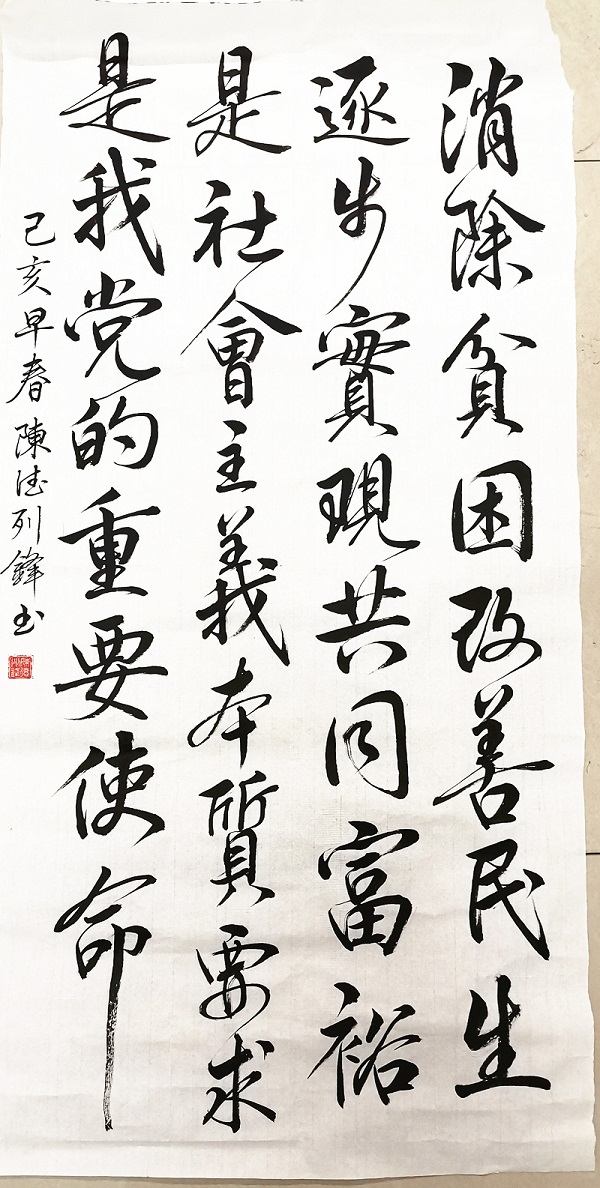 消除貧困改善民生
逐步實現共同富裕
是社會主義本質要求
是我党的重要使命
己亥早春陳德列鋒书